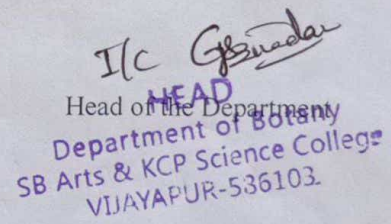 I/c
HEAD
Head of the Department
Department of Botany
SB Arts & KCP Science College
VIJAYAPUR-586103.